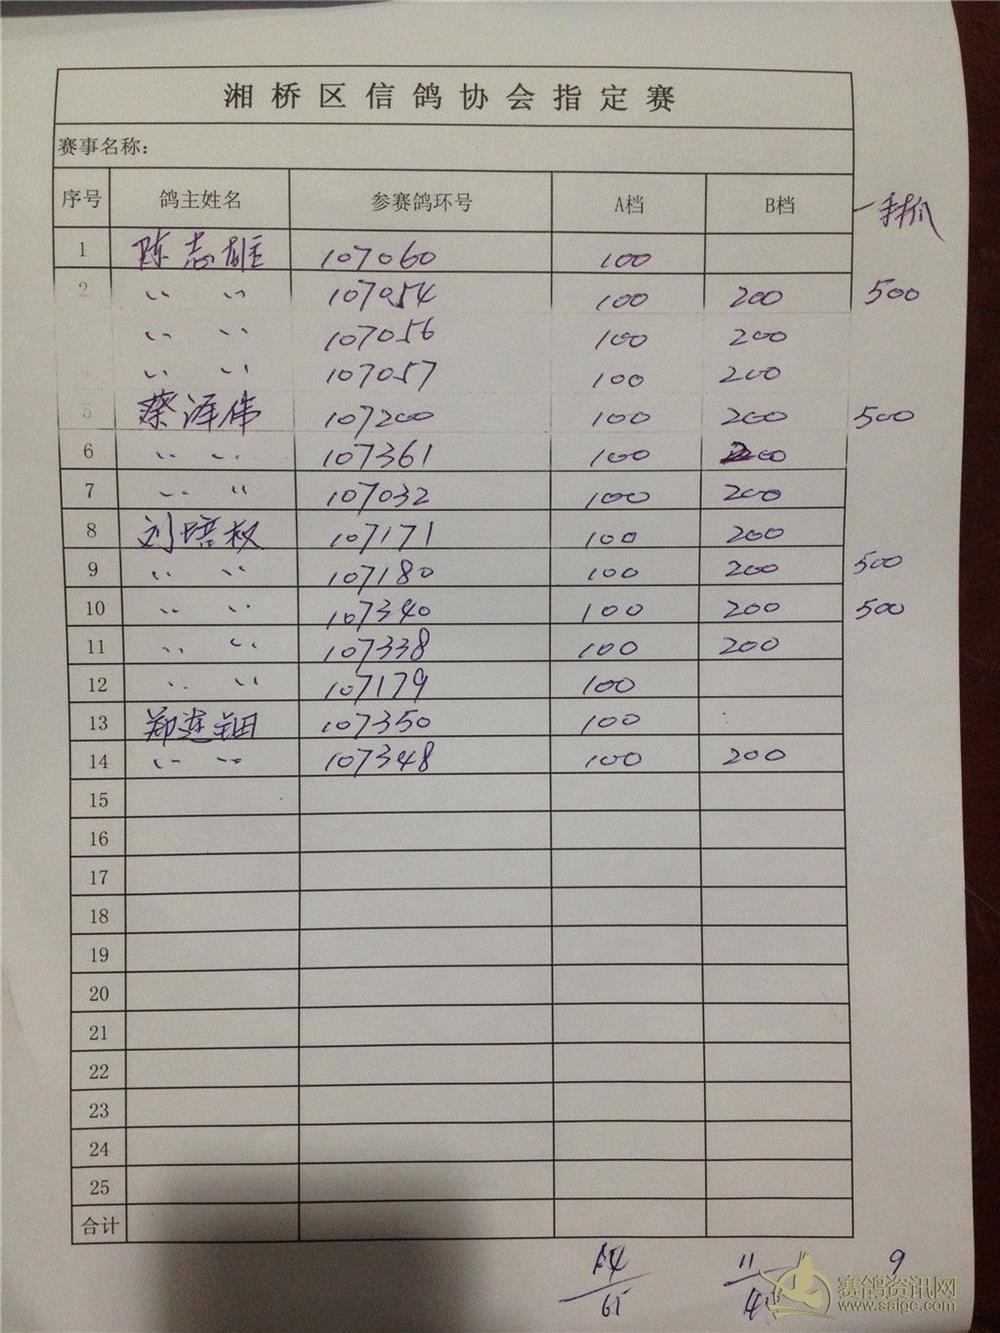 湘桥区信鸽协会指定赛
赛事名称：
序号 鸽主姓名 参赛鸽环号 A档 B档 一手抓
1 陈志雄 107060 100
2 〃 〃 107054 100 200 500
〃 〃 107056 100 200
〃 〃 107057 100 200
5 蔡泽伟 107200 100 200 500
6 〃 〃 107361 100 200
7 〃 〃 107032 100 200
8 刘培权 107171 100 200
9 〃 〃 107180 100 200 500
10 〃 〃 107340 100 200 500
11 〃 〃 107338 100 200
12 〃 〃 107179 100
13 郑莲钿 107350 100
14 〃 〃 107348 100 200
15
16
17
18
19
20
21
22
23
24
25
合计
14 11 9
61
赛鸽资讯网
www.saige.com